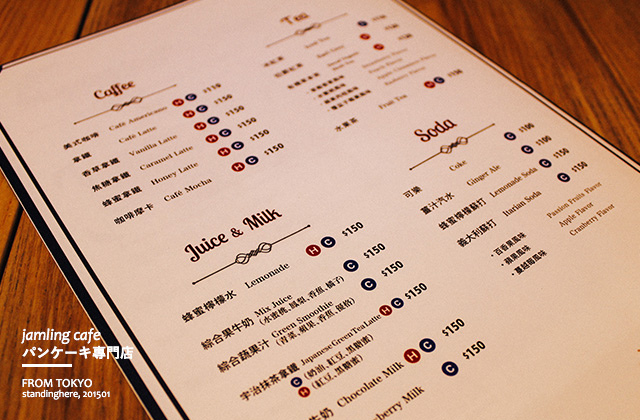 Coffee
美式咖啡 Café Americano H C $110
拿鐵 Cafe Latte H C $130
香草拿鐵 Vanilla Latte H C $150
焦糖拿鐵 Caramel Latte H C $150
蜂蜜拿鐵 Honey Latte H C $150
咖啡摩卡 Café Mocha H C $150
Tea
水果茶 Fruit Tea H C
Soda
可樂 Coke C $100
薑汁汽水 Ginger Ale C
蜂蜜檸檬蘇打 Lemonade Soda C $150
義大利蘇打 Itarian Soda C $150
·百香果風味 Passion Fruits Flavor
·蘋果風味 Apple Flavor
·蔓越莓風味 Cranberry Flavor
Juice & Milk
蜂蜜檸檬水 Lemonade H C $150
綜合果牛奶 Mix Juice C $150
綜合蔬果汁 Green Smoothie C $150
宇治抹茶拿鐵 Japanese Green Tea Latte H C $150
(奶油,紅豆,黑糖蜜)
(紅豆,黑糖蜜)
牛奶 Chocolate Milk H C $150
Milk C $150
jamling cafe
パンケーキ専門店
FROM TOKYO
standinghere, 201501